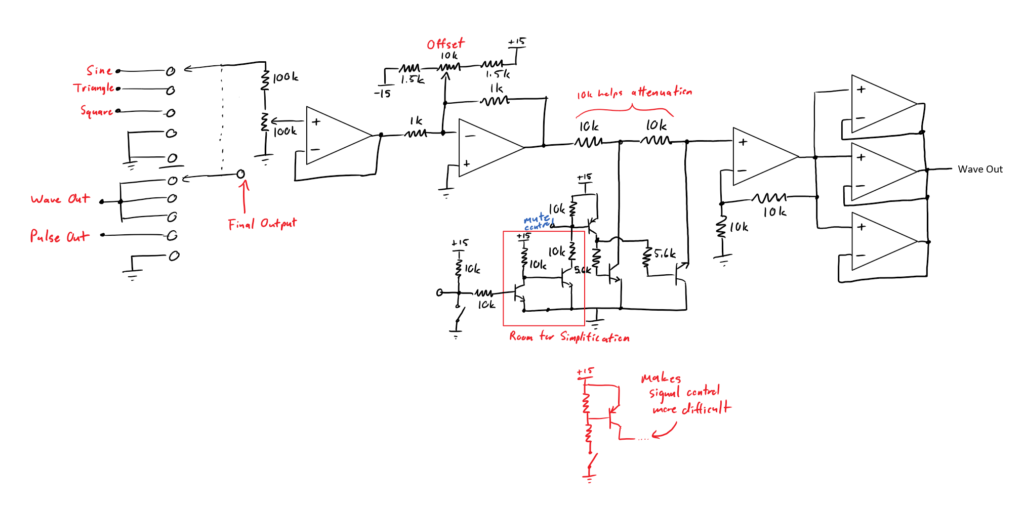 Offset
+15
10k
1.5k
1.5k
-15
Sine
Triangle
Square
100k
100k
1k
1k
10k helps attenuation
10k
10k
Wave Out
Pulse Out
Final Output
+15
10k
mute
control
+15
10k
10k
5.6k
5.6k
+15
10k
10k
Room for Simplification
10k
10k
Wave Out
+15
Makes
signal control
more difficult
....
+
−
−
+
+
−
+
−
+
−
+
−